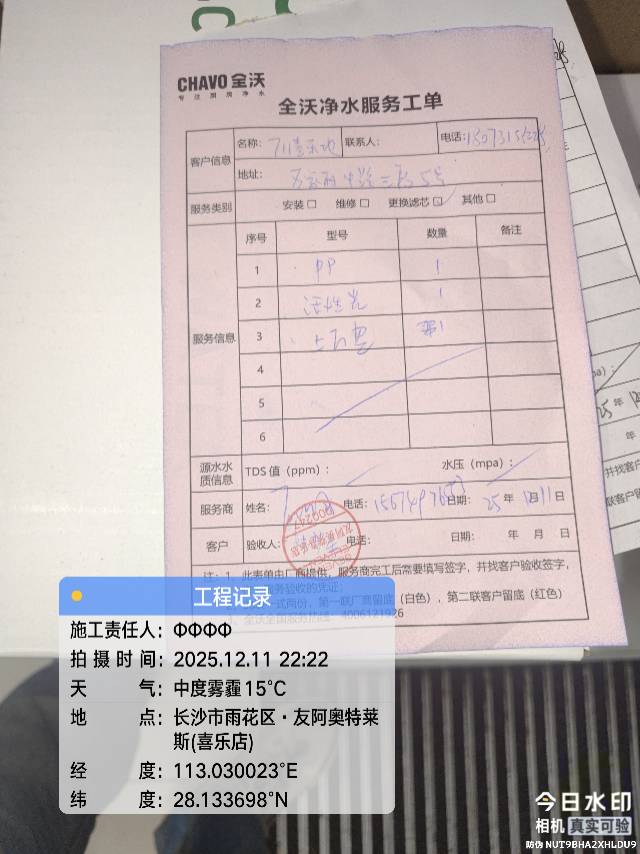 CHAVO 全沃
专注厨房净水
全沃净水服务工单
客户信息 名称: 711喜乐地 联系人: 电话:
地址:
服务类别 安装 □ 维修 □ 更换滤芯 □ 其他 □
服务信息 序号 型号 数量 备注
1 PP 1
2 活性炭 1
3 1
4
5
6
源水水质信息 TDS 值（ppm）: 水压（mpa）:
服务商 姓名: 电话: 日期: 25 年 12月11日
客户 验收人: 电话: 日期: 年 月 日
注: 1、此表单由厂商提供，服务商完工后需要填写签字，并找客户验收签字，
服务验收的凭证;
一式两份，第一联厂商留底（白色），第二联客户留底（红色）
3、全沃全国服务热线: 4006121926
工程记录
施工责任人: ΦΦΦΦ
拍摄时间: 2025.12.11 22:22
天 气: 中度雾霾 15°C
地 点: 长沙市雨花区·友阿奥特莱
斯(喜乐店)
经 度: 113.030023°E
纬 度: 28.133698°N
今日水印
相机 真实可验
防伪 NUT9BHA2XHLDU9